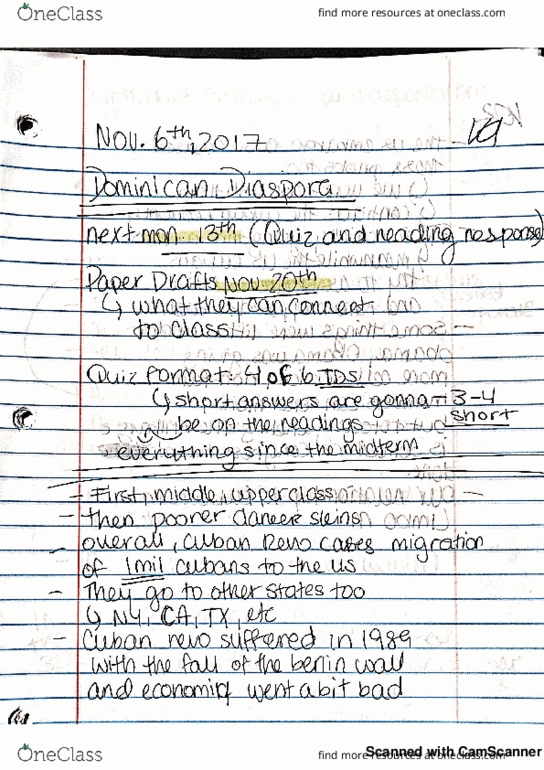 OneClass
find more resources at oneclass.com
Nov. 6th, 2017
Dominican Diaspora
next mon. 13th (Quiz and reading response)
Paper Drafts Nov. 20th
↳ what they can connect
to class
Quiz format: 4 of 6 IDS
↳ short answers are gonna 3-4
be on the readings short
everything since the midterm
- First, middle, upper class
- then poorer
- overall, Cuban Revo migration
of 1mil Cubans to the US
- They go to other states too
↳ NY, CA, TX, etc
- Cuban revo suffered in 1989
with the fall of the berlin wall
and went a bit bad
OneClass
find more resources at oneclass.com
Scanned with CamScanner